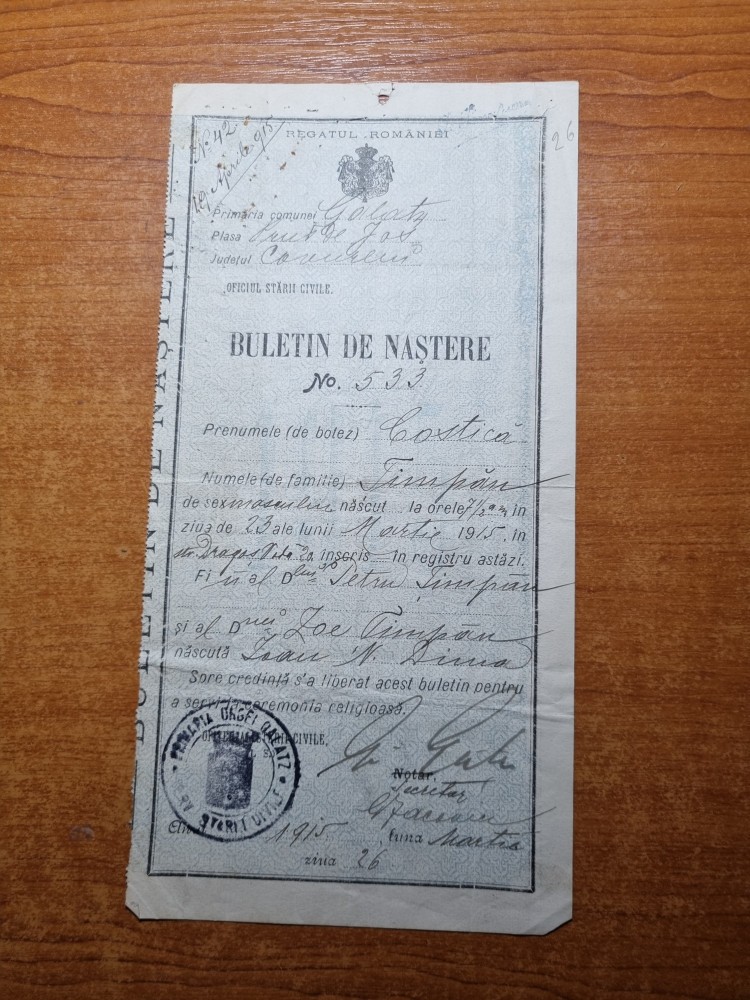 No 42
19 Aprilie 915
26
REGATUL ROMÂNIEI
Primăria comunei Galatz
Plasa Prut de Jos
Județul Covurlui
OFICIUL STĂRII CIVILE.
BULETIN DE NAȘTERE
No. 533
Prenumele (de botez) Costică
Numele (de familie) Timpăn
de sex masculin născut la orele 7 1/2 a m în
ziua de 23 ale lunii Martie 1915, în
str Dragoș Vodă 20 înscris în registru astăzi.
Fiu al D lui Petru Țimpăn
și al D nei Zoe Timpăn
născută Ioan N. Dima
Spre credință s'a liberat acest buletin pentru
a servi la ceremonia religioasă.
OFIȚERUL STĂRII CIVILE,
Notar,
Secretar
1915, luna Martie
ziua 26
PRIMĂRIA URBEI GALATZ
STĂRII CIVILE
BULETIN DE NAȘTERE